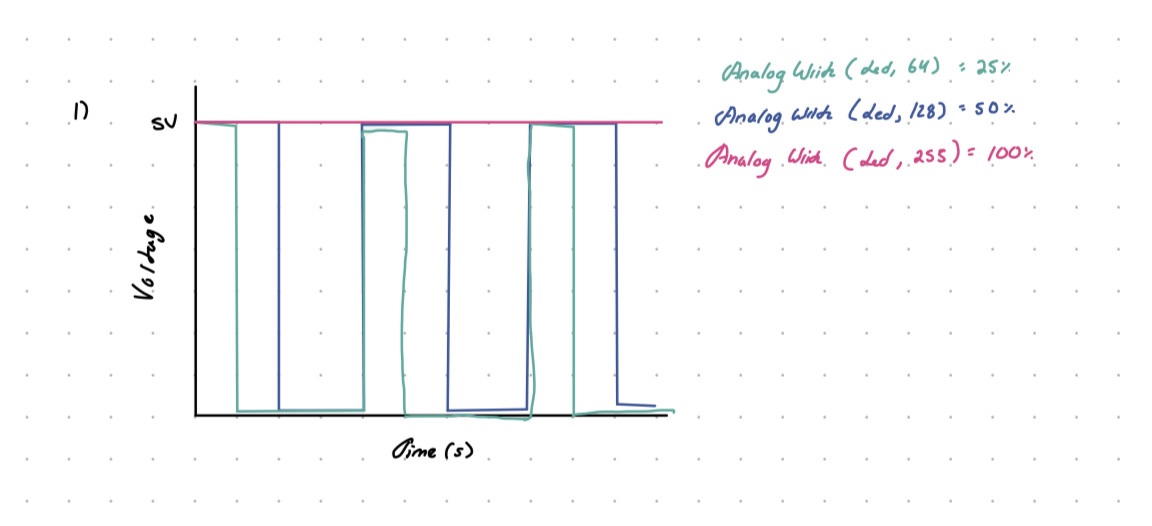 1)
5V
Voltage
Time (s)
Analog Write (led, 64) = 25%
Analog Write (led, 128) = 50%
Analog Write (led, 255) = 100%